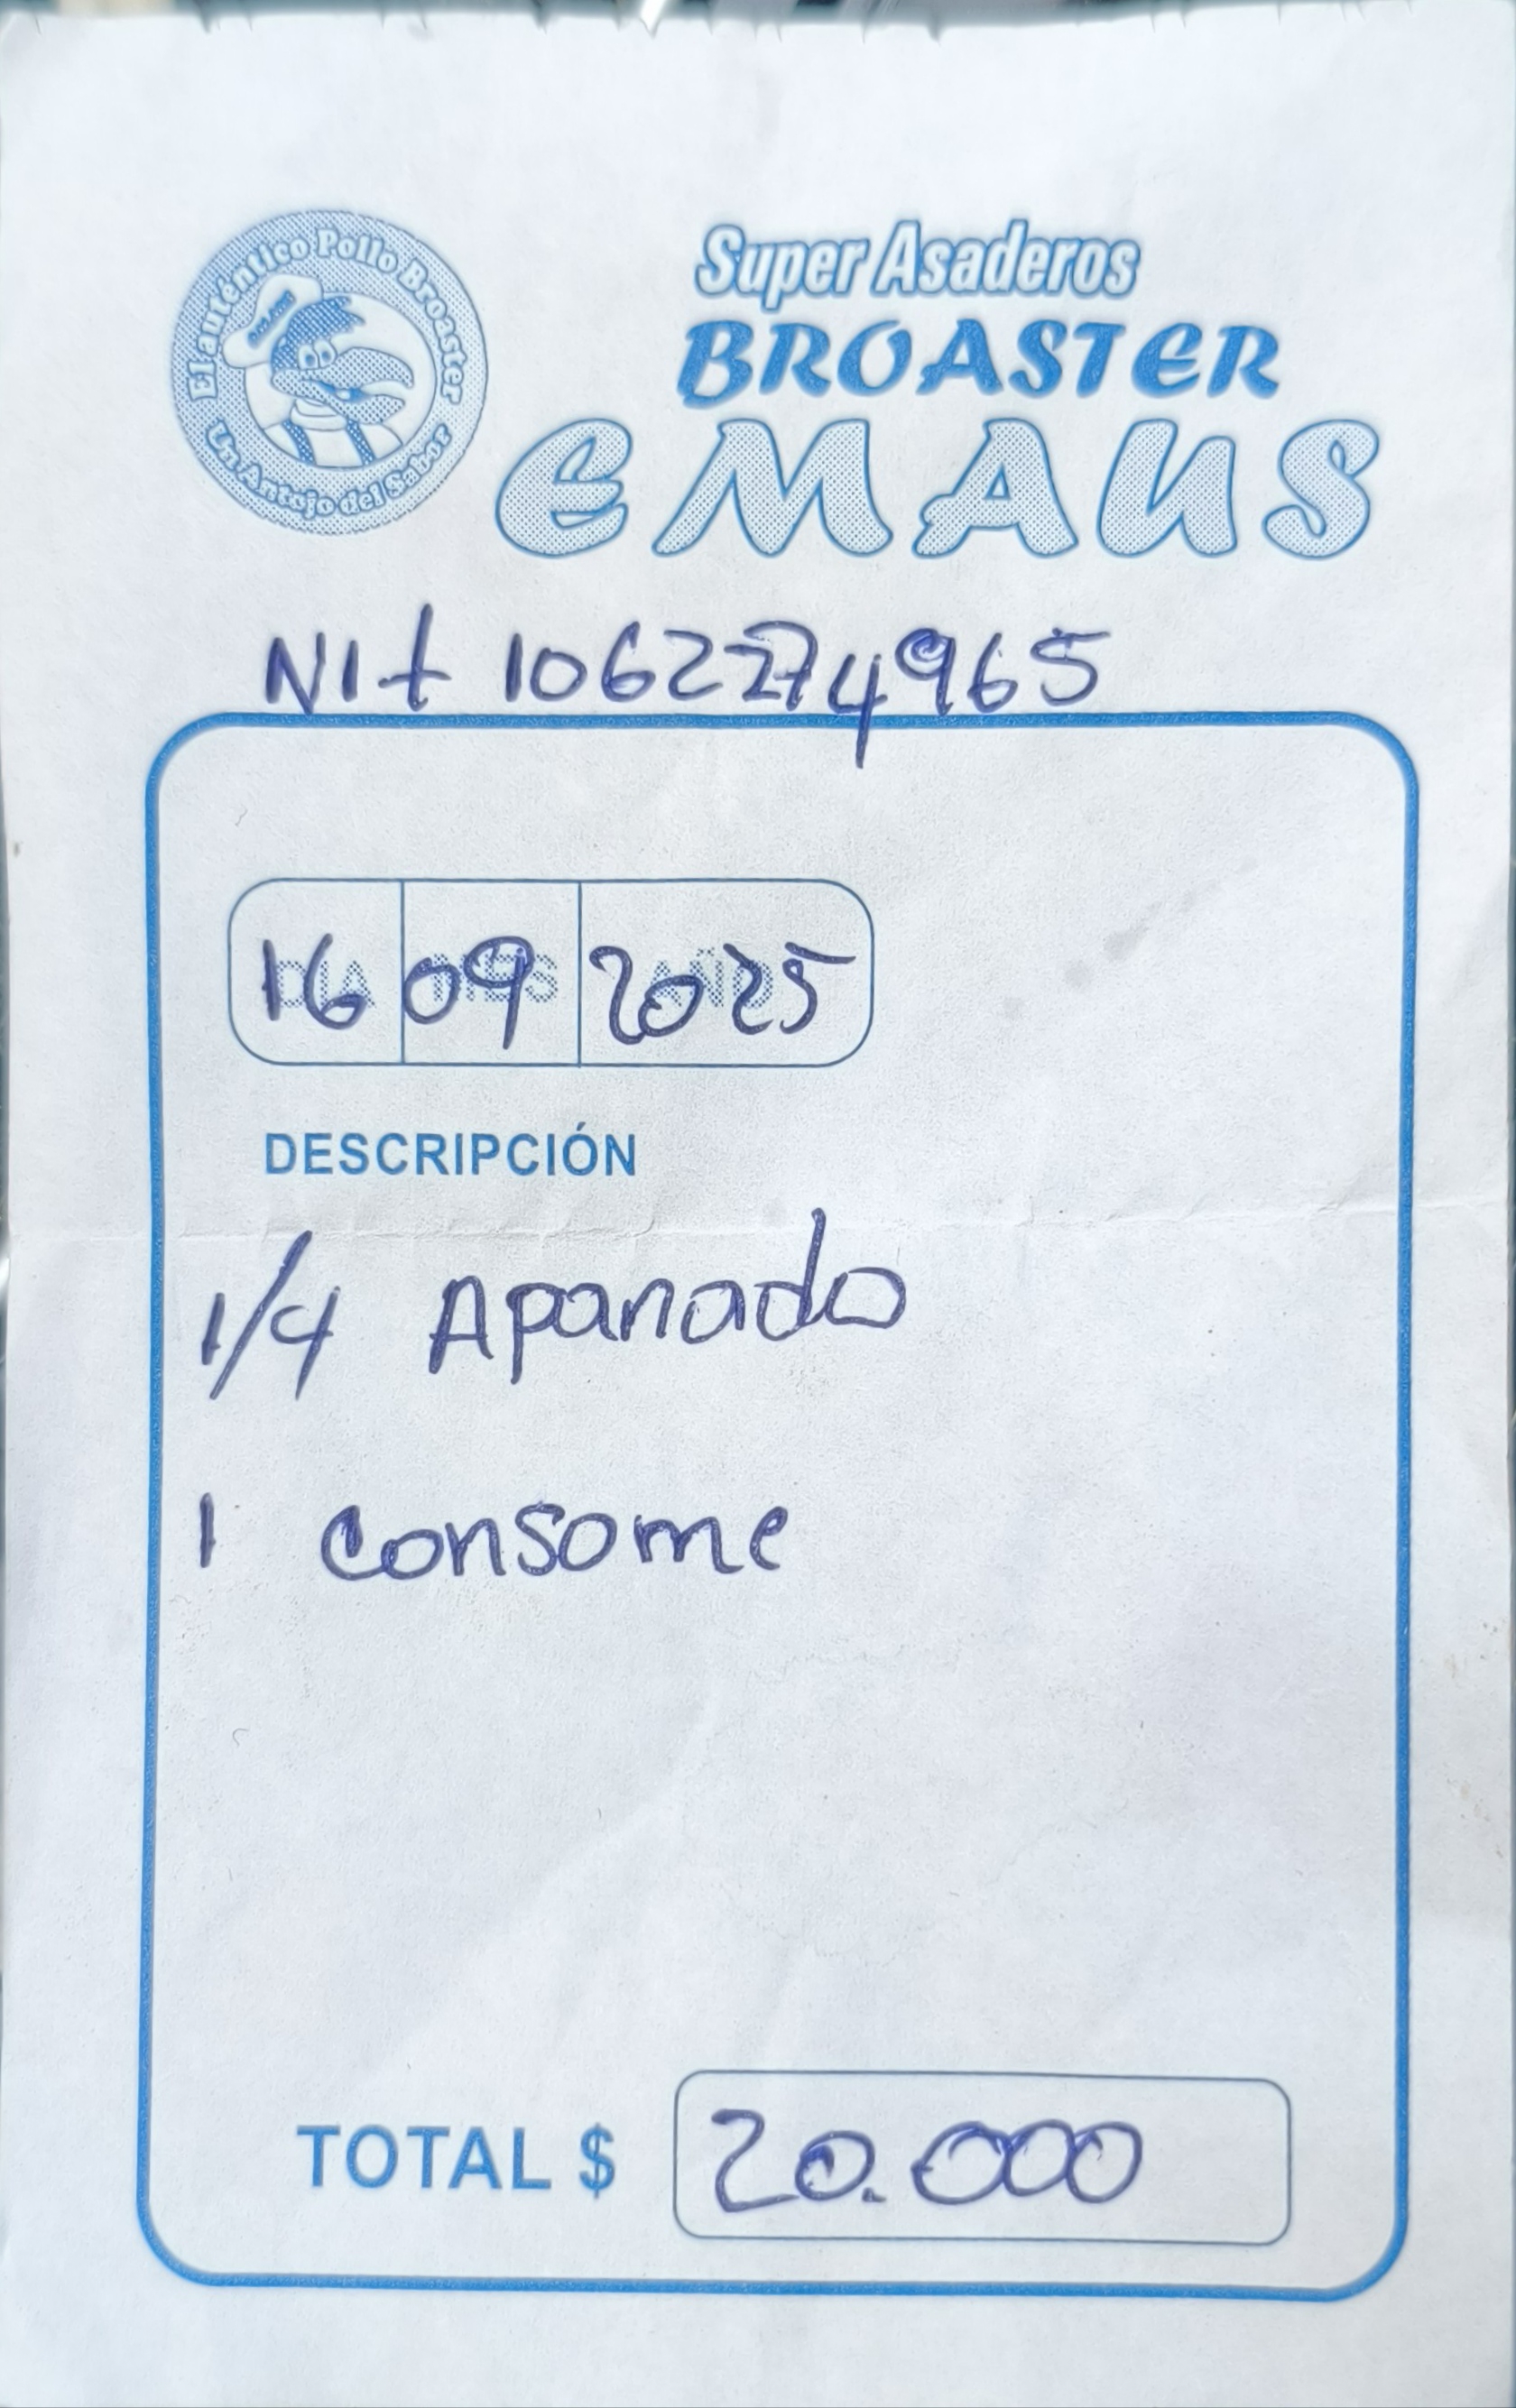 El auténtico Pollo Broaster
Un Antojo del Sabor
Super Asaderos
BROASTER
EMAUS
Nit 1062274965
DÍA MES AÑO
16 09 2025
DESCRIPCIÓN
1/4 Apanado
1 Consome
TOTAL $ 20.000